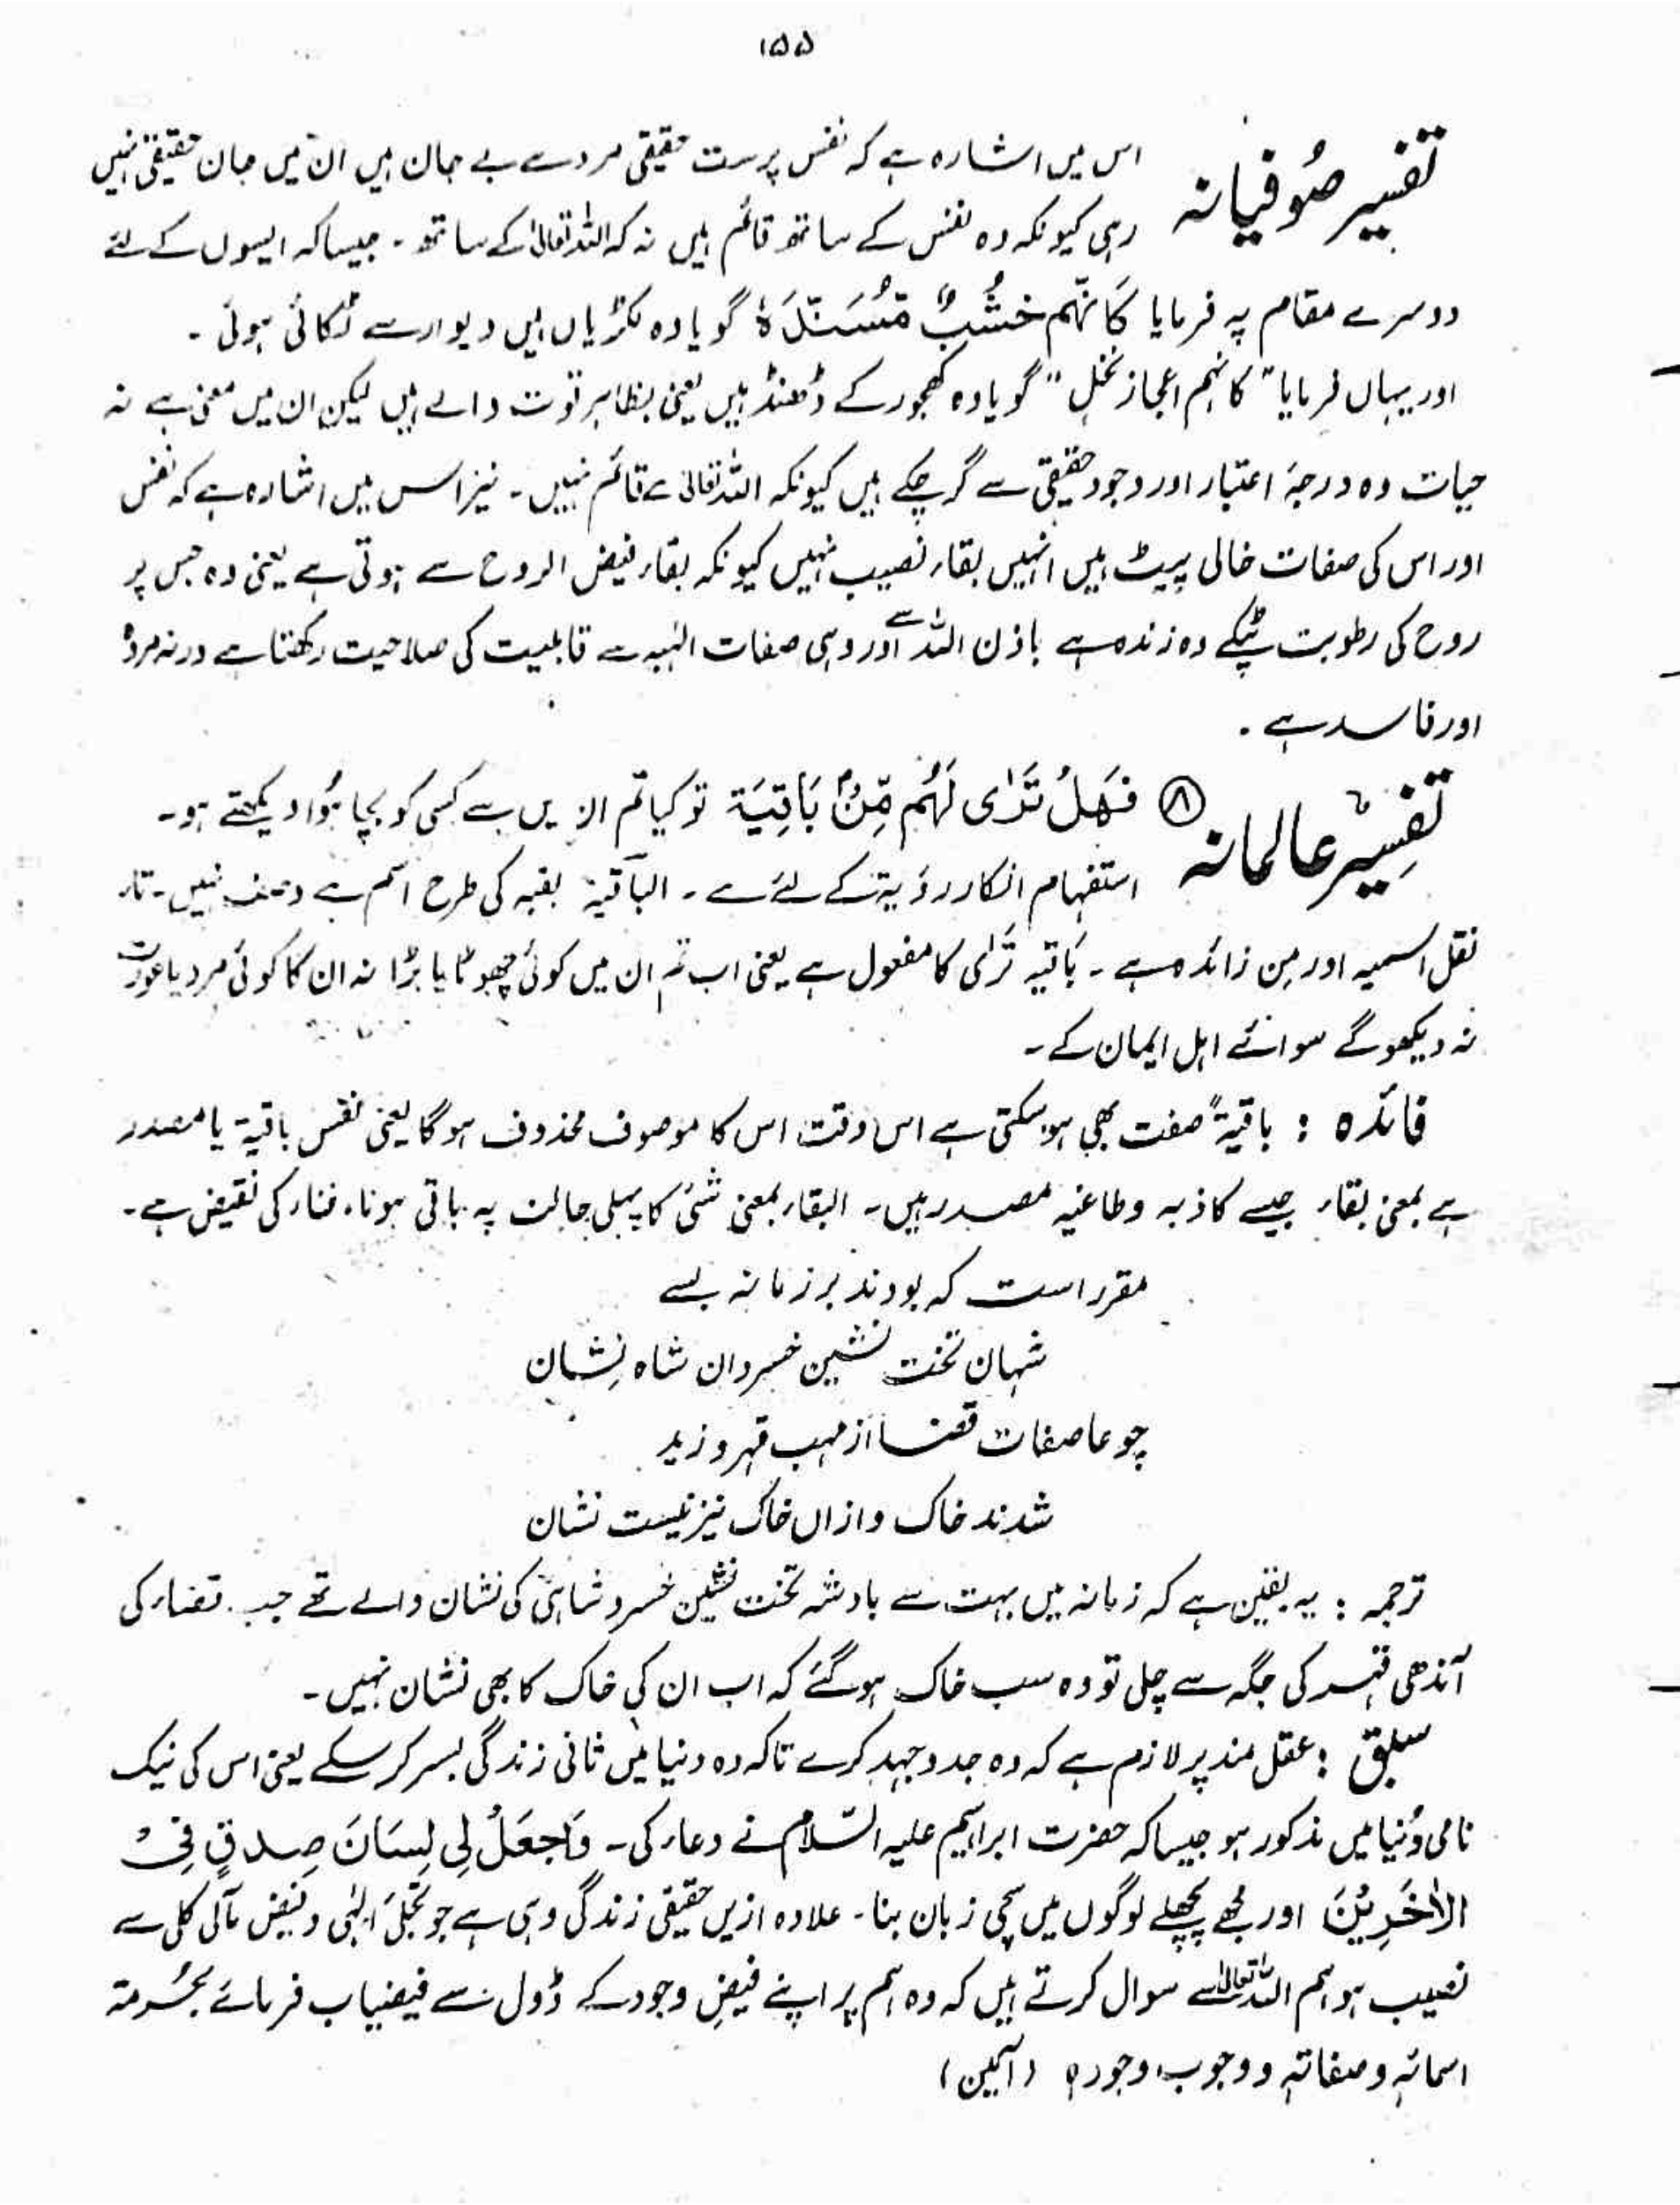 ۱۵۵
تفسیر صُوفیانہ
اس میں اشارہ ہے کہ نفس پرست حقیقی مردے بے جان ہیں ان میں جان حقیقی نہیں
رہی کیونکہ وہ نفس کے ساتھ قائم ہیں نہ کہ اللہ تعالیٰ کے ساتھ ۔ جیسا کہ ایسوں کے لئے
دوسرے مقام پہ فرمایا كَاَنَّهُم خُشُبٌ مُّسَنَّدَۃٌ گویا وہ لکڑیاں ہیں دیوار سے ٹکائی ہوئی ۔
اور یہاں فرمایا "کانہم اعجاز نخل" گویا وہ کھجور کے ڈھنڈ ہیں یعنی بظاہر قوت والے ہیں لیکن ان میں معنی ہے نہ
حیات وہ درجۂ اعتبار اور وجود حقیقی سے گر چکے ہیں کیونکہ اللہ تعالیٰ سے قائم نہیں ۔ نیز اس میں اشارہ ہے کہ نفس
اور اس کی صفات خالی پیٹ ہیں انہیں بقاء نصیب نہیں کیونکہ بقاء فیض الروح سے ہوتی ہے یعنی وہ جس پر
روح کی رطوبت ٹپکے وہ زندہ ہے باذن اللہ سے اور وہی صفات الٰہیہ سے قابلیت کی صلاحیت رکھتا ہے ورنہ مردہ
اور فاسد ہے ۔
تفسیر عالمانہ
⑧ فَهَلْ تَرٰى لَهُم مِّنْۢ بَاقِيَة تو کیا تم ان میں سے کسی کو بچا ہُوا دیکھتے ہو ۔
استفہام انکار رؤیۃ کے لئے ہے ۔ الباقیۃ بقیہ کی طرح اسم ہے وصف نہیں ۔ تاء
نقل اسمیہ اور مِن زائدہ ہے ۔ بَاقیہ تَرٰی کا مفعول ہے یعنی اب تم ان میں کوئی چھوٹا یا بڑا نہ ان کا کوئی مرد یا عورت
نہ دیکھو گے سوائے اہل ایمان کے ۔
فائدہ : باقیۃً صفت بھی ہو سکتی ہے اس وقت اس کا موصوف محذوف ہو گا یعنی نفس باقیۃ یا مصدر
ہے بمعنی بقاء جیسے کاذبہ و طاغیہ مصدر ہیں ۔ البقاء بمعنی شئ کا پہلی حالت پہ باقی ہونا ، فناء کی نقیض ہے ۔
مقرر است کہ بودند بر زمانہ بسے
شہان تخت نشین خسروان شاہ نِشان
چو عاصفات قضا از مہب قہر و زید
شدند خاک و ازاں خاک نیز نیست نشان
ترجمہ : یہ یقین ہے کہ زمانہ میں بہت سے بادشہ تخت نشین خسرو شاہی کی نشان والے تھے جب قضاء کی
آندھی قہر کی جگہ سے چلی تو وہ سب خاک ہو گئے کہ اب ان کی خاک کا بھی نشان نہیں ۔
سبق : عقل مند پر لازم ہے کہ وہ جد و جہد کرے تاکہ وہ دنیا میں ثانی زندگی بسر کر سکے یعنی اس کی نیک
نامی دُنیا میں مذکور ہو جیسا کہ حضرت ابراہیم علیہ السّلام نے دعاء کی ۔ وَاجعَلْ لِی لِسَانَ صِدقٍ فِیْ
الْاٰخَرِیْنَ اور مجھے پچھلے لوگوں میں سچی زبان بنا ۔ علاوہ ازیں حقیقی زندگی وہی ہے جو تجلّی الٰہی و بفیض مآلی کلی سے
نصیب ہو ہم اللہ تعالیٰ سے سوال کرتے ہیں کہ وہ ہم پر اپنے فیضِ وجود کے ڈول سے فیضیاب فرمائے بحُرمۃ
اسمائہٖ و صفاتہٖ و وجوب وجودہٖ ( آمین )